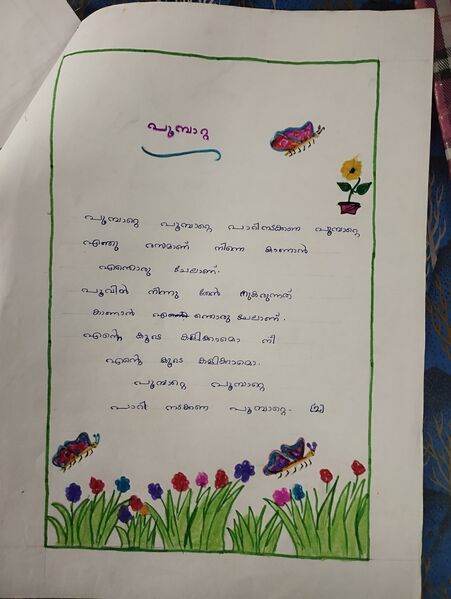 പൂമ്പാറ്റ
പൂമ്പാറ്റെ പൂമ്പാറ്റെ പാറിനടക്കണ പൂമ്പാറ്റെ
എന്തു രസമാണ് നിന്നെ കാണാൻ
എന്തൊരു ചേലാണ്.
പൂവിൽ നിന്നു തേൻ നുകരുന്നത്
കാണാൻ എന്തൊരു ചേലാണ്.
എന്റെ കൂടെ കളിക്കാമൊ നീ
എന്റെ കൂടെ കളിക്കാമൊ.
പൂമ്പാറ്റെ പൂമ്പാറ്റെ
പാറി നടക്കണ പൂമ്പാറ്റെ. (2)